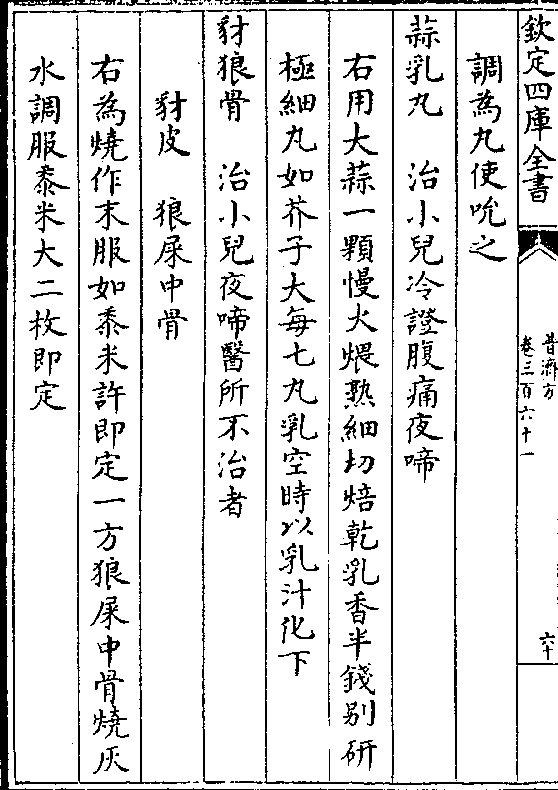 欽定四庫全書
普濟方
卷三百六十一
六十
調為丸使吮之
蒜乳丸　治小兒冷證腹痛夜啼
右用大蒜一顆慢火煨熟細切焙乾乳香半錢别研
極細丸如芥子大每七丸乳空時以乳汁化下
豺狼骨　治小兒夜啼醫所不治者
豺皮　狼屎中骨
右為燒作末服如黍米許即定一方狼屎中骨燒灰
水調服黍米大二枚即定